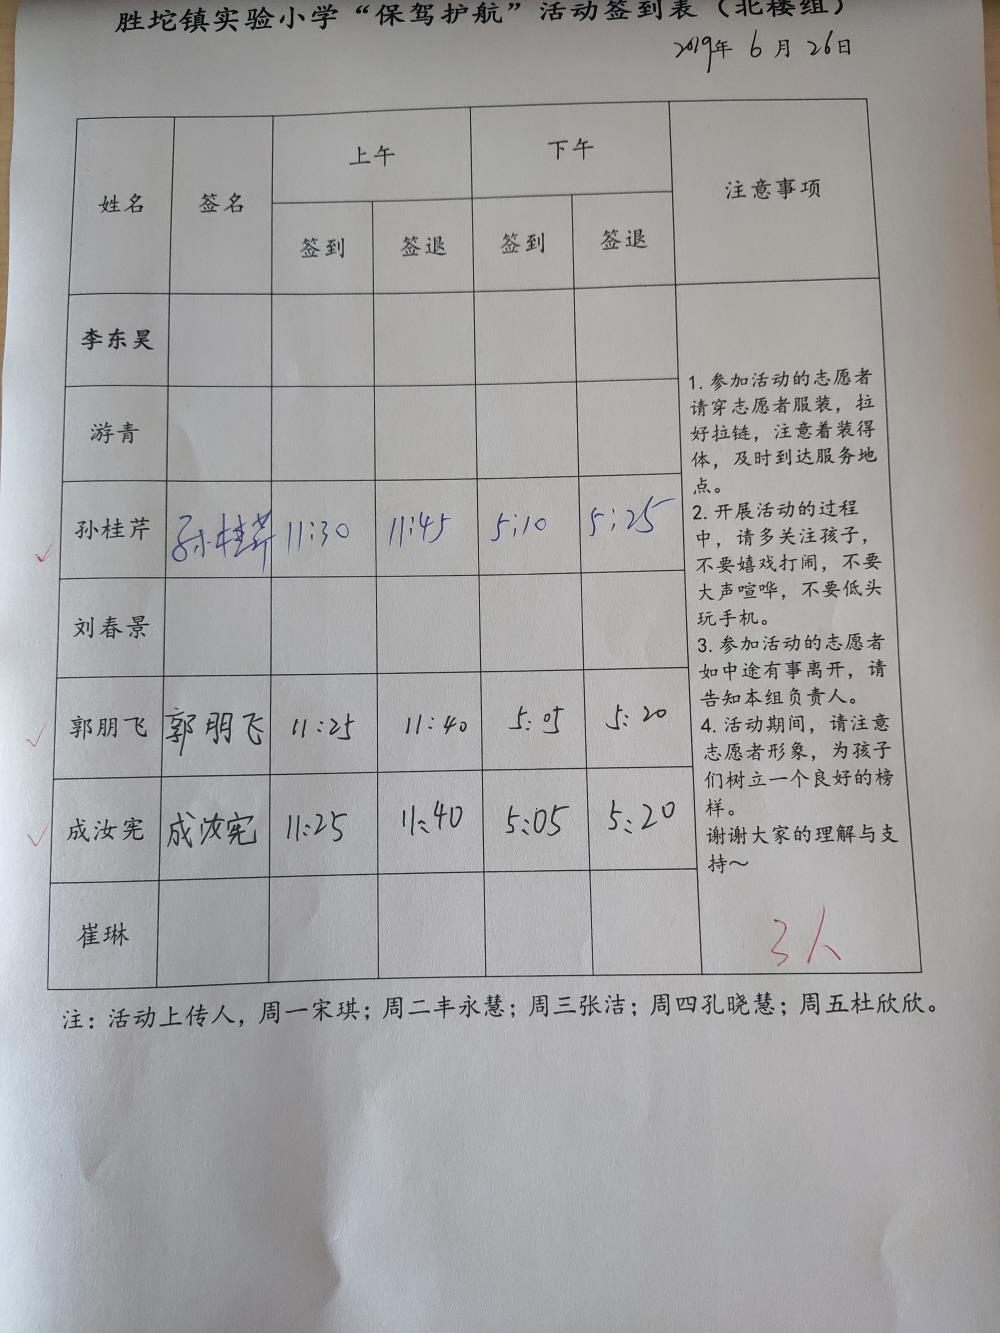 胜坨镇实验小学“保驾护航”活动签到表（北楼组）
2019年 6月 26日
姓名 签名 上午 下午 注意事项
签到 签退 签到 签退
李东昊
游青
孙桂芹 孙桂芹 11:30 11:45 5:10 5:25
刘春景
郭朋飞 郭朋飞 11:25 11:40 5:05 5:20
成汝宪 成汝宪 11:25 11:40 5:05 5:20
崔琳
1. 参加活动的志愿者
请穿志愿者服装，拉
好拉链，注意着装得
体，及时到达服务地
点。
2. 开展活动的过程
中，请多关注孩子，
不要嬉戏打闹，不要
大声喧哗，不要低头
玩手机。
3. 参加活动的志愿者
如中途有事离开，请
告知本组负责人。
4. 活动期间，请注意
志愿者形象，为孩子
们树立一个良好的榜
样。
谢谢大家的理解与支
持～
3人
注：活动上传人，周一宋琪；周二丰永慧；周三张洁；周四孔晓慧；周五杜欣欣。